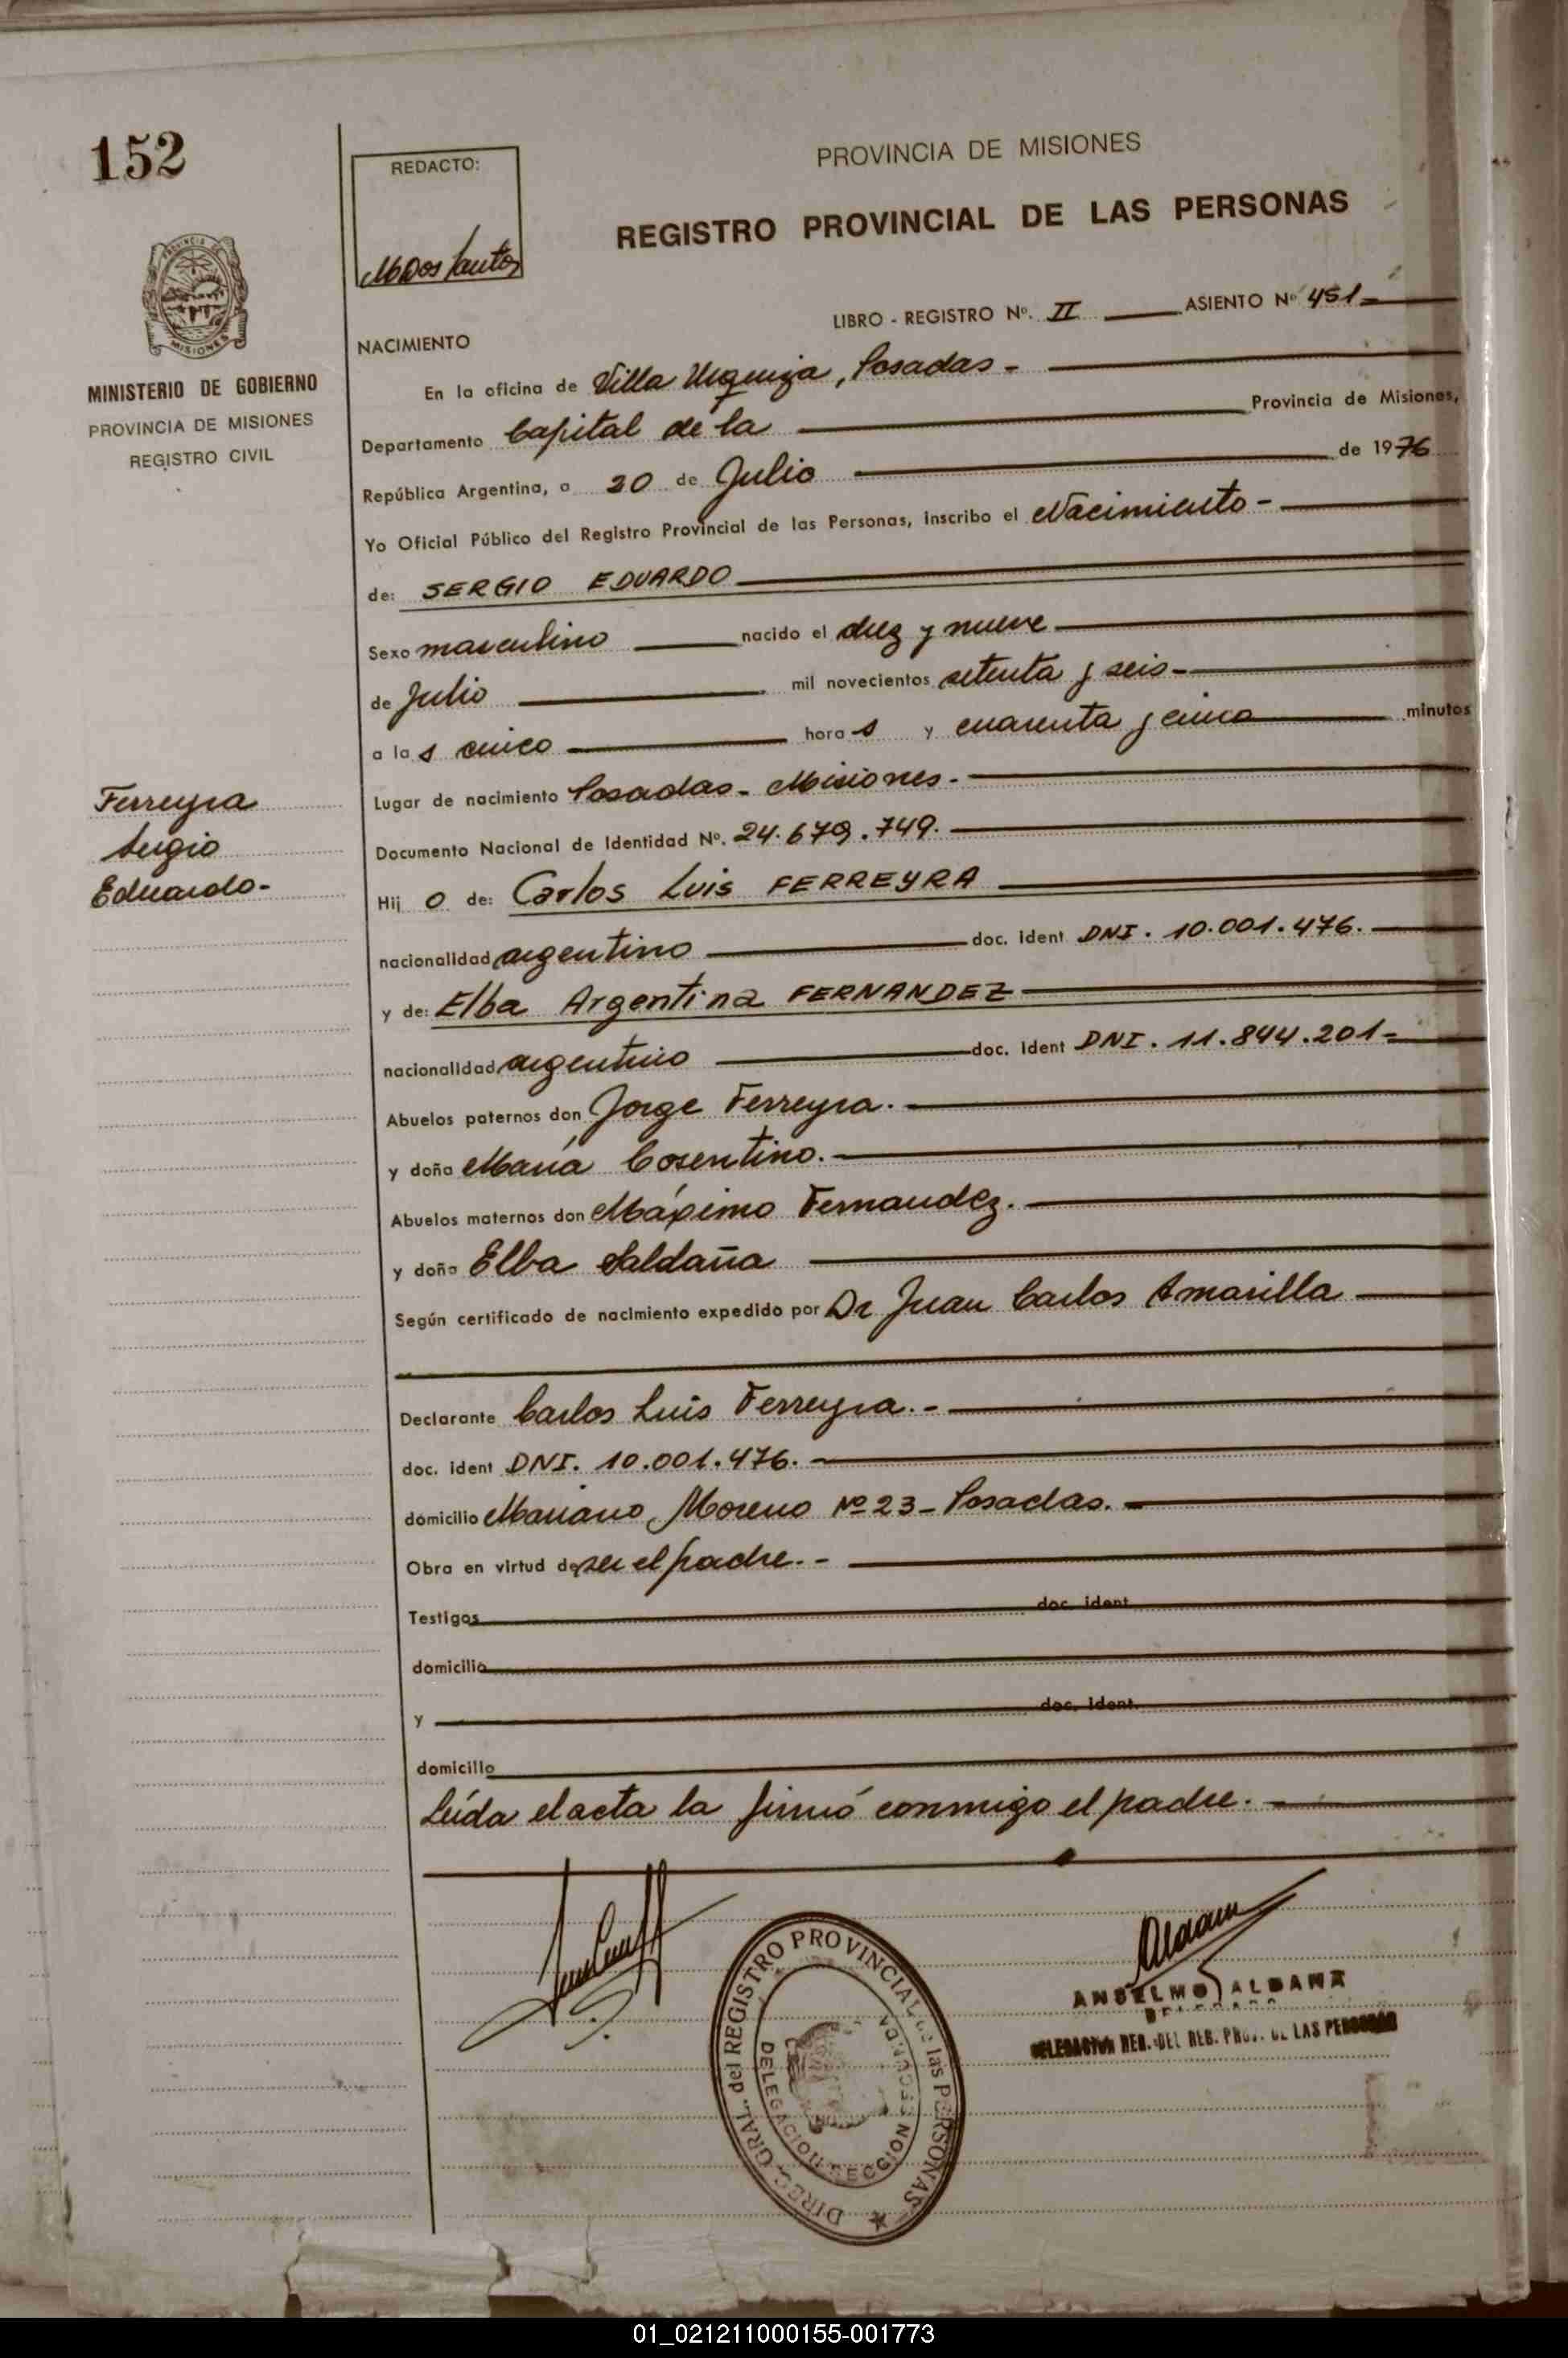 152
REDACTO:
MDos Santos
PROVINCIA DE MISIONES
REGISTRO PROVINCIAL DE LAS PERSONAS
PROVINCIA DE
MISIONES
MINISTERIO DE GOBIERNO
PROVINCIA DE MISIONES
REGISTRO CIVIL
LIBRO - REGISTRO Nº. II ASIENTO Nº 451-
NACIMIENTO
En la oficina de Villa Urquiza, Posadas -
Departamento Capital de la Provincia de Misiones,
República Argentina, a 20 de Julio de 1976
Yo Oficial Público del Registro Provincial de las Personas, inscribo el Nacimiento -
de: SERGIO EDUARDO
Sexo masculino nacido el diez y nueve
de Julio mil novecientos setenta y seis -
a las cinco horas y cuarenta y cinco minutos
Lugar de nacimiento Posadas - Misiones -
Documento Nacional de Identidad Nº. 24.679.749.
Ferreyra
Sergio
Eduardo-
Hijo de: Carlos Luis FERREYRA
nacionalidad argentino doc. ident DNI. 10.001.476.
y de: Elba Argentina FERNANDEZ
nacionalidad argentino doc. ident DNI. 11.844.201-
Abuelos paternos don Jorge Ferreyra.
y doña María Cosentino.
Abuelos maternos don Máximo Fernandez.
y doña Elba Saldaña
Según certificado de nacimiento expedido por Dr Juan Carlos Amarilla
Declarante Carlos Luis Ferreyra. -
doc. ident DNI. 10.001.476.
domicilio Mariano Moreno Nº 23 - Posadas.
Obra en virtud de ser el padre. -
Testigos doc. ident
domicilio
y doc. ident
domicilio
Leída el acta la firmó conmigo el padre.
DIREC. GRAL. del REGISTRO PROVINCIAL de las PERSONAS
DELEGACION SECCION SEGUNDA
ANSELMO ALDANA
DELEGACION REG. DEL REG. PROV. DE LAS PERSONAS
01_021211000155-001773